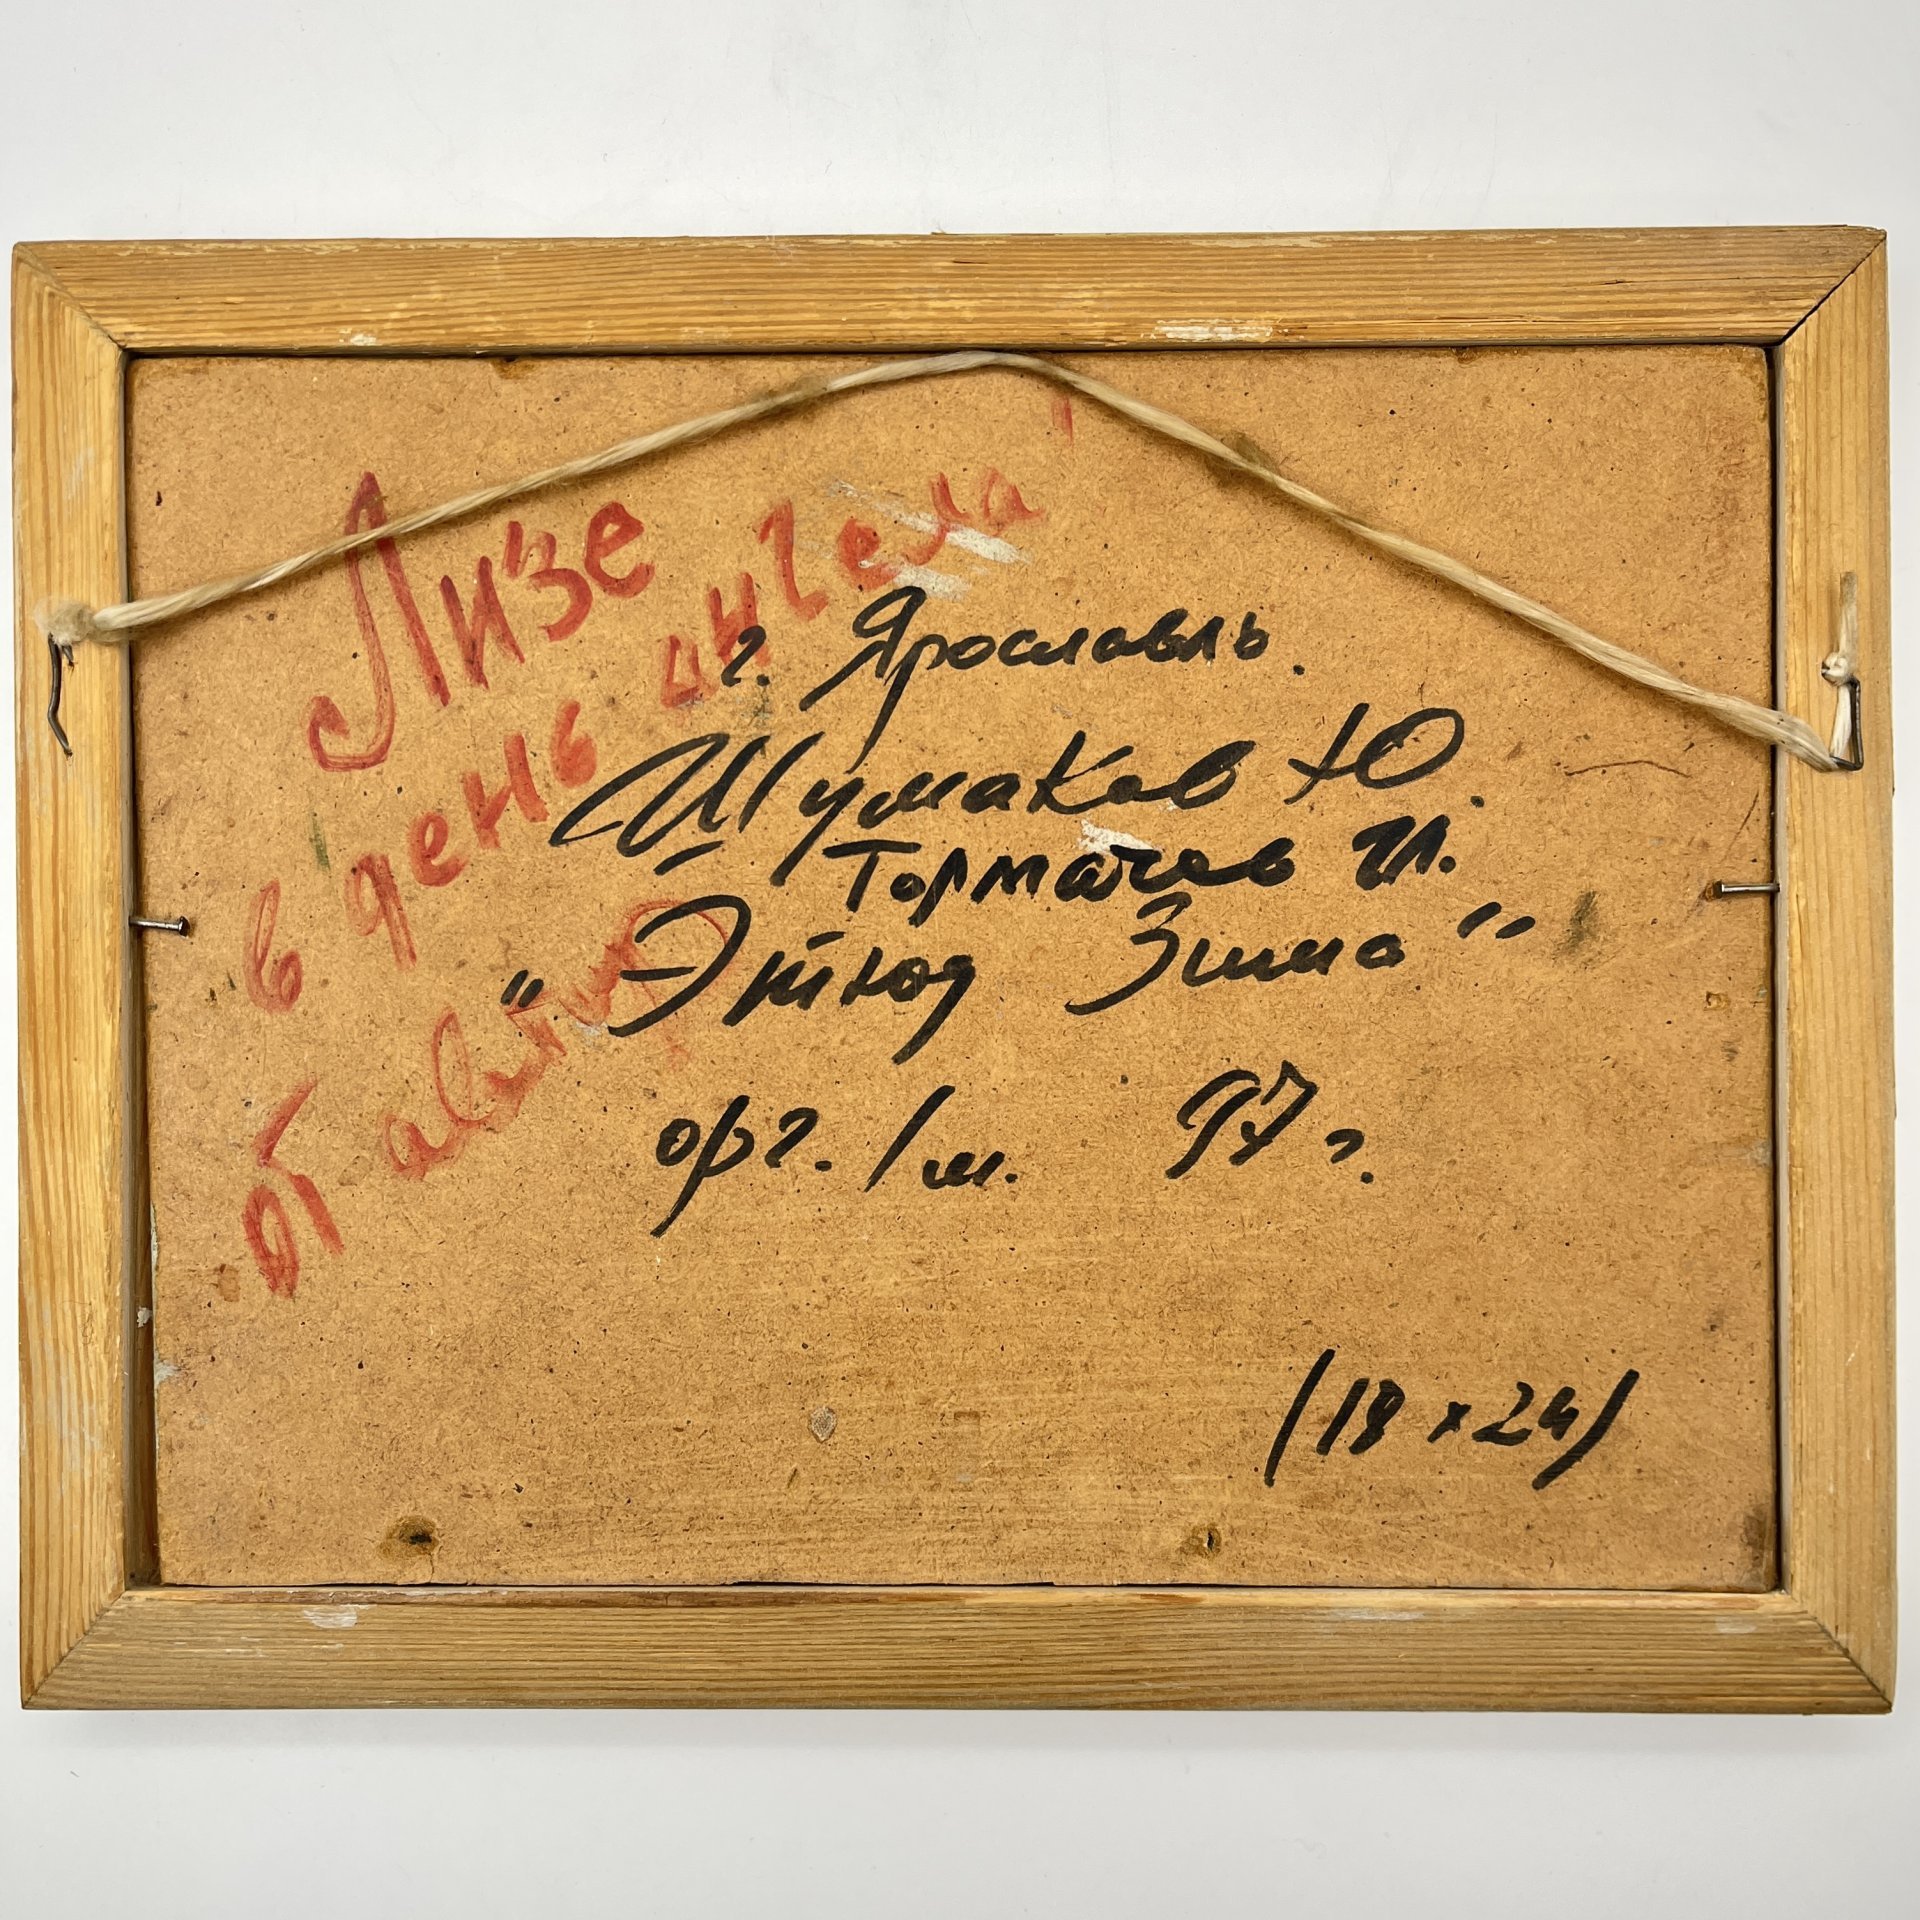 Лизе
в день ангела"
от автора
г. Ярославль.
Шумаков Ю.
Тормачев И.
"Этюд Зима"
орг. / м. 97 г.
(18 х 24)